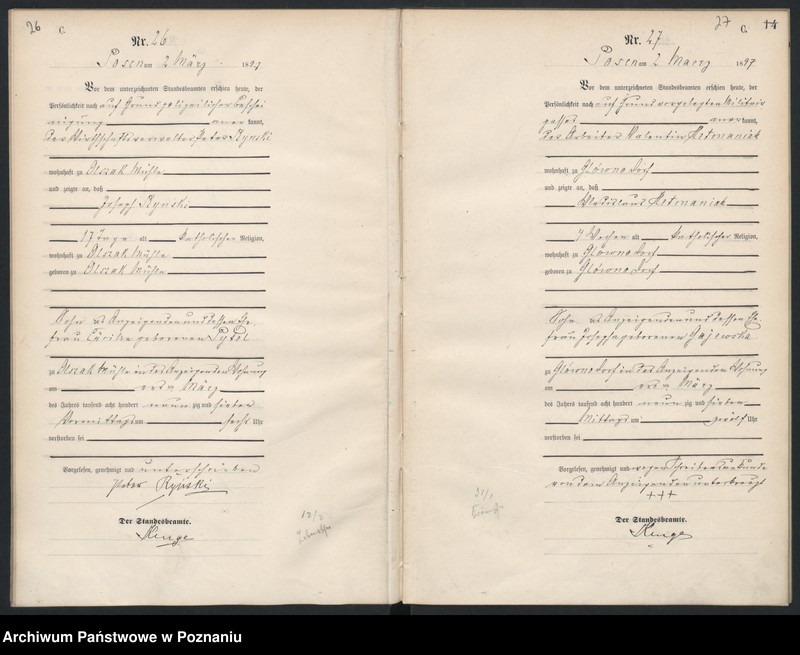 26
C.
Nr. 26
Posen am 2 März 1897
Vor dem unterzeichneten Standesbeamten erschien heute, der
Persönlichkeit nach auf Grund polizeilicher Beschei
nigung anerkannt,
der Wirthschaftsverwalter Peter Rynski
wohnhaft zu Olszak Mühle
und zeigte an, daß
Joseph Rynski
17 Tage alt katholischer Religion,
wohnhaft zu Olszak Mühle
geboren zu Olszak Mühle
Sohn des Anzeigenden und dessen Ehe
frau Cäcilie geborenen Pytel
zu Olszak Mühle in des Anzeigenden Wohnung
am ersten März
des Jahrs tausend acht hundert neun zig und sieben
Vormittags um sechs Uhr
verstorben sei
Vorgelesen, genehmigt und unterschrieben
Peter Ryński
Der Standesbeamte.
27
C.
14
Nr. 27
Posen am 2 Maerz 1897
Vor dem unterzeichneten Standesbeamten erschien heute, der
Persönlichkeit nach auf Grund vorgelegten Militair
passes anerkannt,
der Arbeiter Valentin Hetmaniak
wohnhaft zu Glówno Dorf
und zeigte an, daß
Wladislaus Hetmaniak
7 Wochen alt katholischer Religion,
wohnhaft zu Glówno Dorf
geboren zu Glówno Dorf
Sohn des Anzeigenden und dessen Ehe
frau Josepha geborenen Gajewska
zu Glówno Dorf in des Anzeigenden Wohnung
am ersten März
des Jahrs tausend acht hundert neun zig und sieben
Mittags um zwölf Uhr
verstorben sei
Vorgelesen, genehmigt und wegen Schreibensunkunde
von dem Anzeigenden unterkreuzt
+++
Der Standesbeamte.
Archiwum Państwowe w Poznaniu